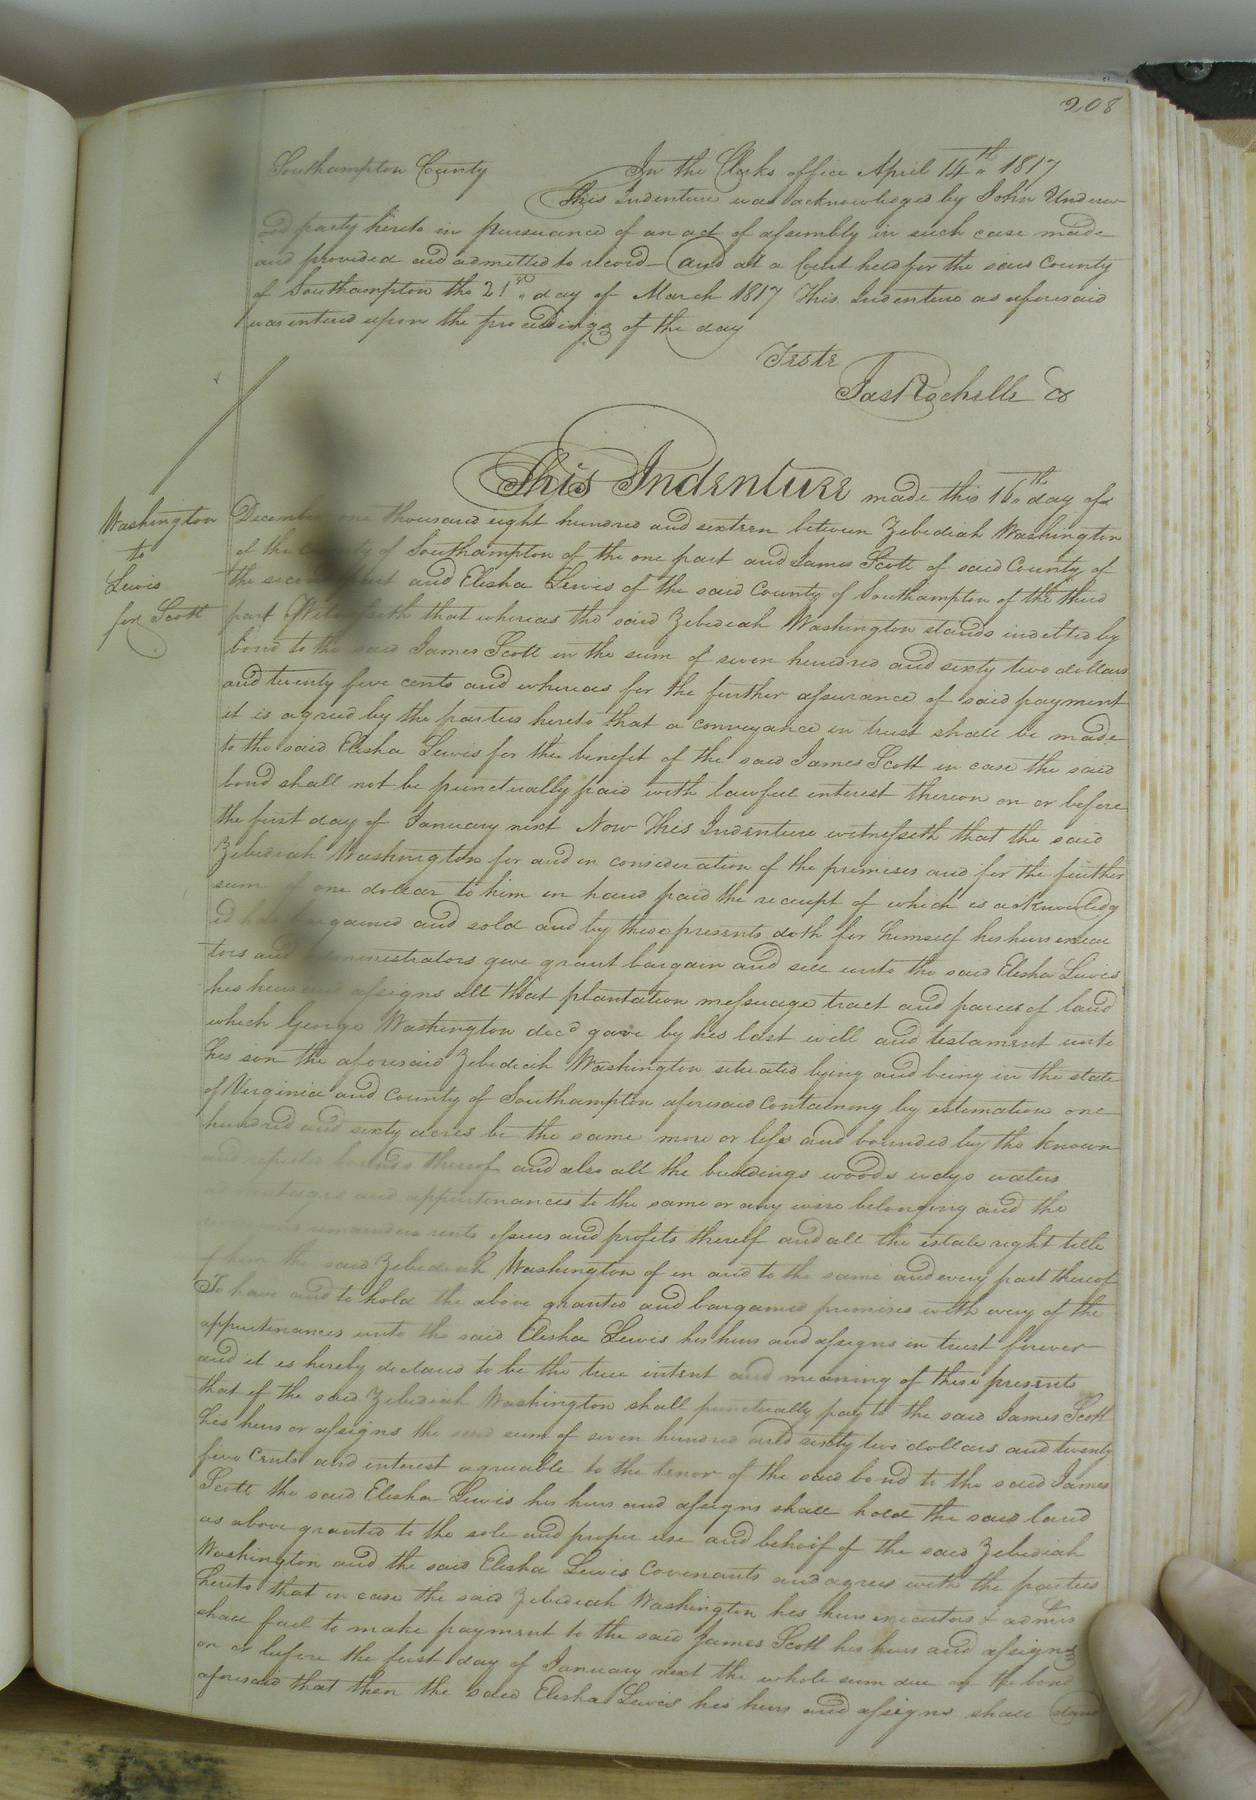 208
Southampton County In the Clerks office April 14th 1817
This Indenture was acknowledged by John Underw
ood party hereto in pursuance of an act of assembly in such case made
and provided and admitted to record - And at a Court held for the said County
of Southampton the 21st day of March 1817 This Indenture as aforesaid
was entered upon the proceedings of the day
Teste
Jas Rochelle Cr
This Indenture made this 10th day of
Washington
to
Lewis
for Scott
December one thousand eight hundred and sixteen between Zebediah Washington
of the County of Southampton of the one part and James Scott of said County of
the second part and Elisha Lewis of the said County of Southampton of the third
part Witnesseth that whereas the said Zebediah Washington stands indebted by
bond to the said James Scott in the sum of seven hundred and sixty two dollars
and twenty five cents and whereas for the further assurance of said payment
it is agreed by the parties hereto that a conveyance in trust shall be made
to the said Elisha Lewis for the benefit of the said James Scott in case the said
bond shall not be punctually paid with lawful interest thereon on or before
the first day of January next Now This Indenture witnesseth that the said
Zebediah Washington for and in consideration of the premises and for the further
sum of one dollar to him in hand paid the receipt of which is acknowledg
ed has bargained and sold and by these presents doth for himself his heirs execu
tors and administrators give grant bargain and sell unto the said Elisha Lewis
his heirs and assigns all that plantation messuage tract and parcel of land
which George Washington decd gave by his last will and testament unto
his son the aforesaid Zebediah Washington situated lying and being in the state
of Virginia and County of Southampton aforesaid containing by estimation one
hundred and sixty acres be the same more or less and bounded by the known
and reputed bounds thereof and also all the buildings woods ways waters
advantages and appurtenances to the same or any wise belonging and the
remainders rents issues and profits thereof and all the estate right title
of him the said Zebediah Washington of in and to the same and every part thereof
To have and to hold the above granted and bargained premises with every of the
appurtenances unto the said Elisha Lewis his heirs and assigns in trust forever
and it is hereby declared to be the true intent and meaning of these presents
that if the said Zebediah Washington shall punctually pay to the said James Scott
his heirs or assigns the said sum of seven hundred and sixty two dollars and twenty
five Cents and interest agreeable to the tenor of the said bond to the said James
Scott the said Elisha Lewis his heirs and assigns shall hold the said land
as above granted to the sole and proper use and behoof of the said Zebediah
Washington and the said Elisha Lewis Covenants and agrees with the parties
hereto that in case the said Zebediah Washington his heirs executors & admrs
shall fail to make payment to the said James Scott his heirs and assigns
on or before the first day of January next the whole sum due on the bond
aforesaid that then the said Elisha Lewis his heirs and assigns shall